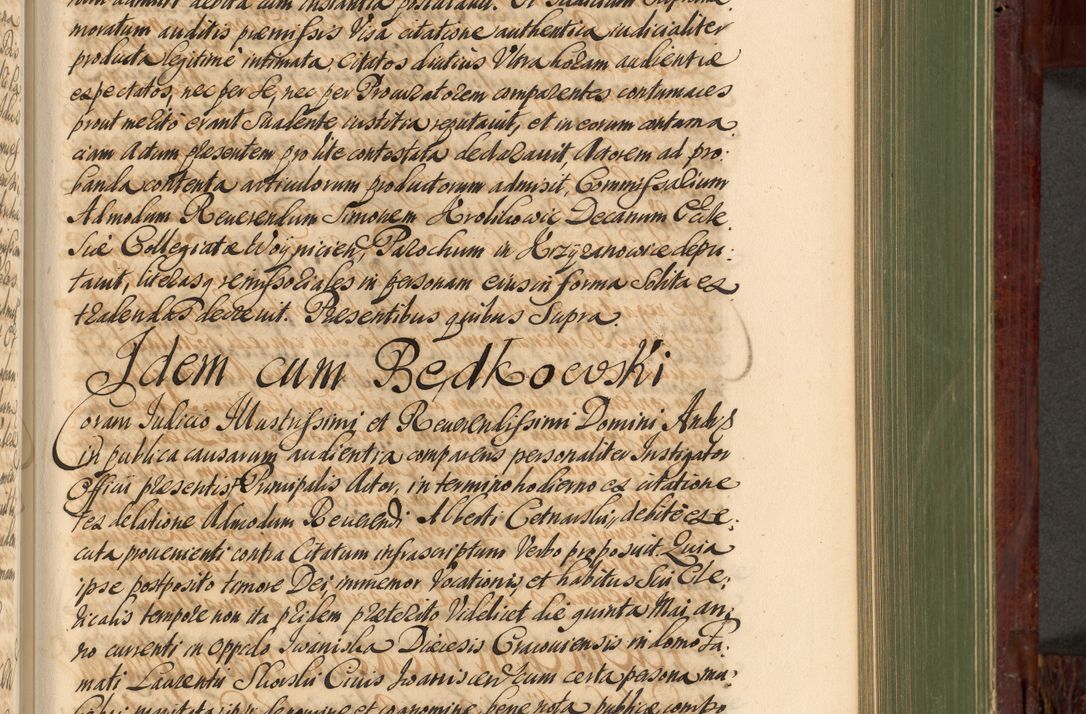 moratum auditis præmissis Visa citatione authentica iudicialiter
producta legitime intimata, Citatos diutius Ultra horam audientiæ
expectatos, nec per se, nec per Procuratorem comparentes contumaces
prout merito erant Suadente iustitia reputavit, et in eorum contuma,
ciam Actum præsentem pro lite contestata declaravit, Actorem ad pro:
banda contenta articulorum productorum admisit, Commissarium
Admodum Reverendum Simonem Krolikowic, Decanum Eccle
siæ Collegiatæ Woynicien, Parochum in Krzyzanowice depu:
tavit, literasq remissoriales in personam eius in forma Solita ex
tradendas decrevit. Præsentibus quibus Supra.
Idem cum Będkowski
Coram Iudicio Illustrissimi et Reverendissimi Domini
in publica causarum audientia comparens personaliter Instigator
Officii præsentis Principalis Actor, in termino hodierno ex citatione
et ex delatione Admodum Reverendi Alberti Cetnarski, debite exe,
cuta provenienti contra Citatum infrascriptum Verbo proposuit. Quia
ipse postposito timore Dei, immemor Vocationis, et habitus Sui Cle,
ricalis tempore non ita pridem præterito Videlicet die quinta Mai an,
no currenti in Oppido Iwaniska Diœcesis Cracoviensis in domo Fa,
mati Laurentii Skorski Civis Iwaniscen cum certa persona mu,